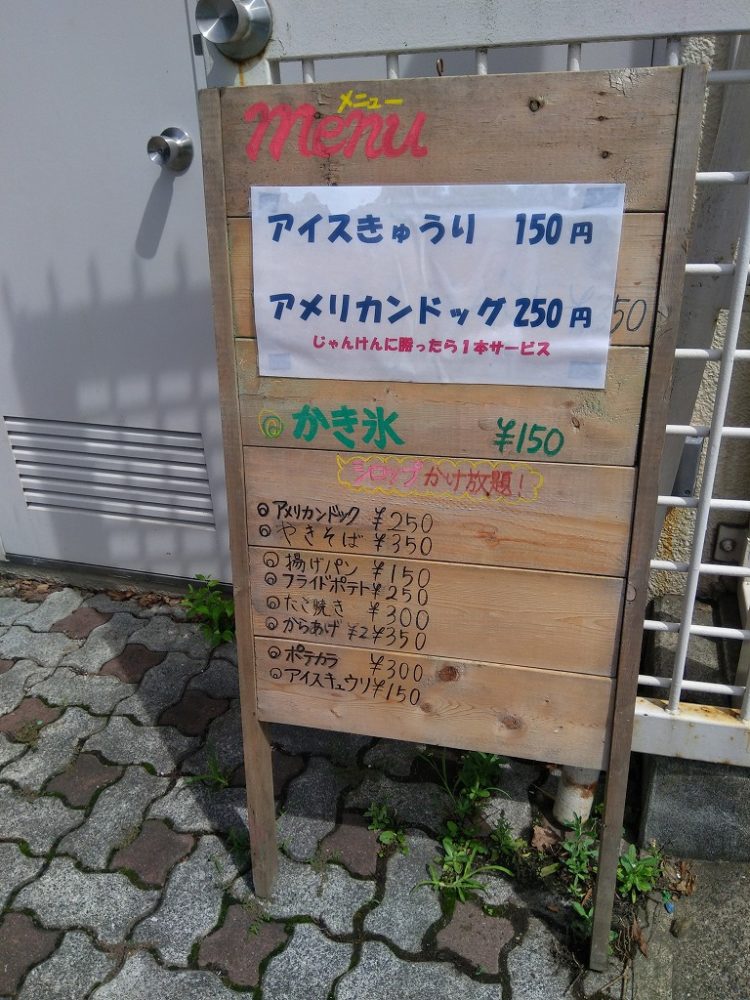 メニュー
Menu
アイスきゅうり 150円
アメリカンドッグ 250円
じゃんけんに勝ったら1本サービス
50
◎かき氷 ¥150
シロップかけ放題!
◎アメリカンドック ¥250
◎やきそば ¥350
◎揚げパン ¥150
◎フライドポテト ¥250
◎たこ焼き ¥300
◎からあげ ¥350
◎ポテカラ ¥300
◎アイスキュウリ ¥150